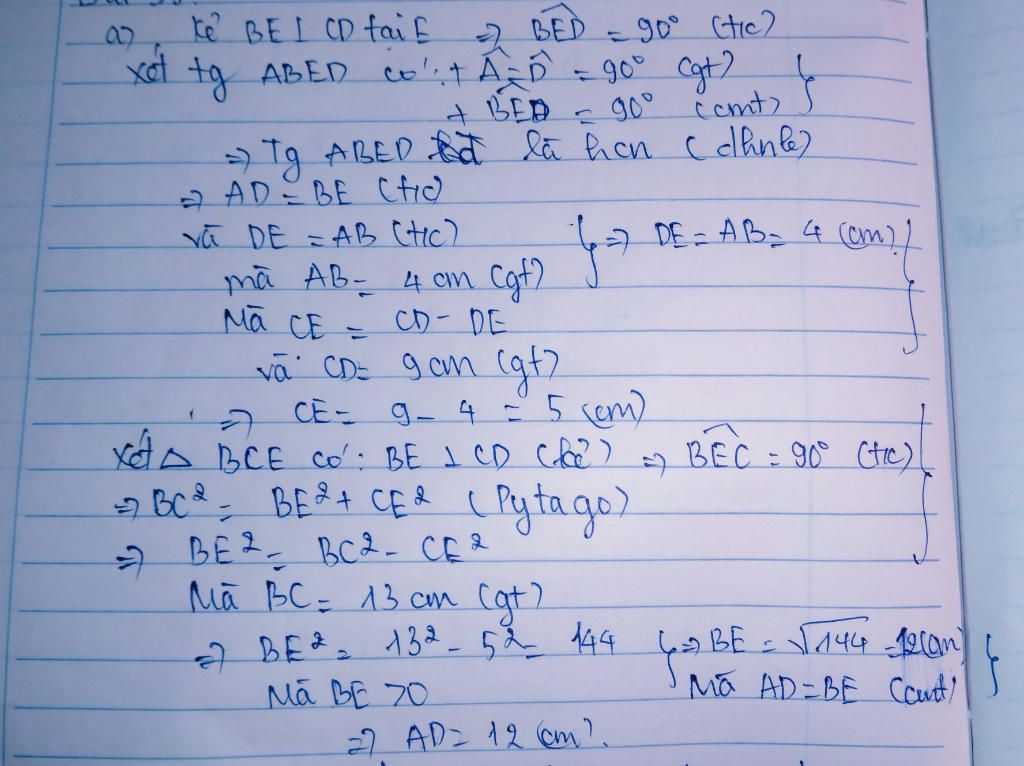 a), kẻ BE ⊥ CD tại E ⇒ BED = 90° (t/c)
xét tg ABED có: + Â = D̂ = 90° (gt)
+ BED = 90° (cmt)
⇒ Tg ABED là hcn (dhnb)
⇒ AD = BE (t/c)
và DE = AB (t/c) } ⇒ DE = AB = 4 (cm)
mà AB = 4 cm (gt)
Mà CE = CD - DE
và CD = 9 cm (gt)
⇒ CE = 9 - 4 = 5 (cm)
xét △ BCE có: BE ⊥ CD (kẻ) ⇒ BEC = 90° (t/c)
⇒ BC² = BE² + CE² (Pytago)
⇒ BE² = BC² - CE²
Mà BC = 13 cm (gt)
⇒ BE² = 13² - 5² = 144 } ⇒ BE = √144 = 12(cm)
Mà BE > 0 Mà AD = BE (cmt)
⇒ AD = 12 (cm).